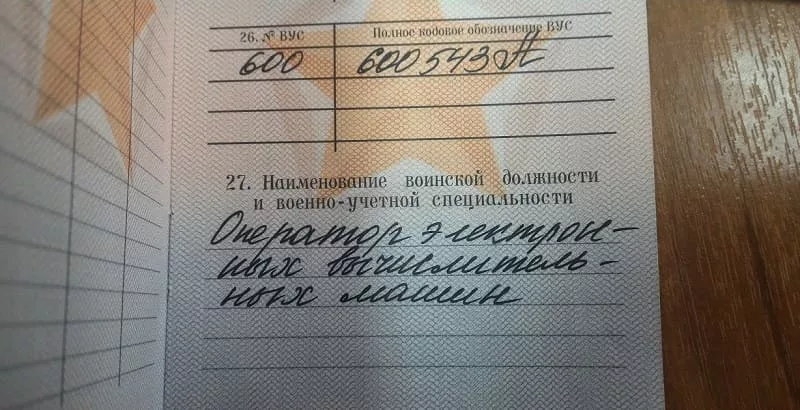 26. № ВУС Полное кодовое обозначение ВУС
600 600543А
27. Наименование воинской должности
и военно-учетной специальности
Оператор электрон-
ных вычислитель-
ных машин